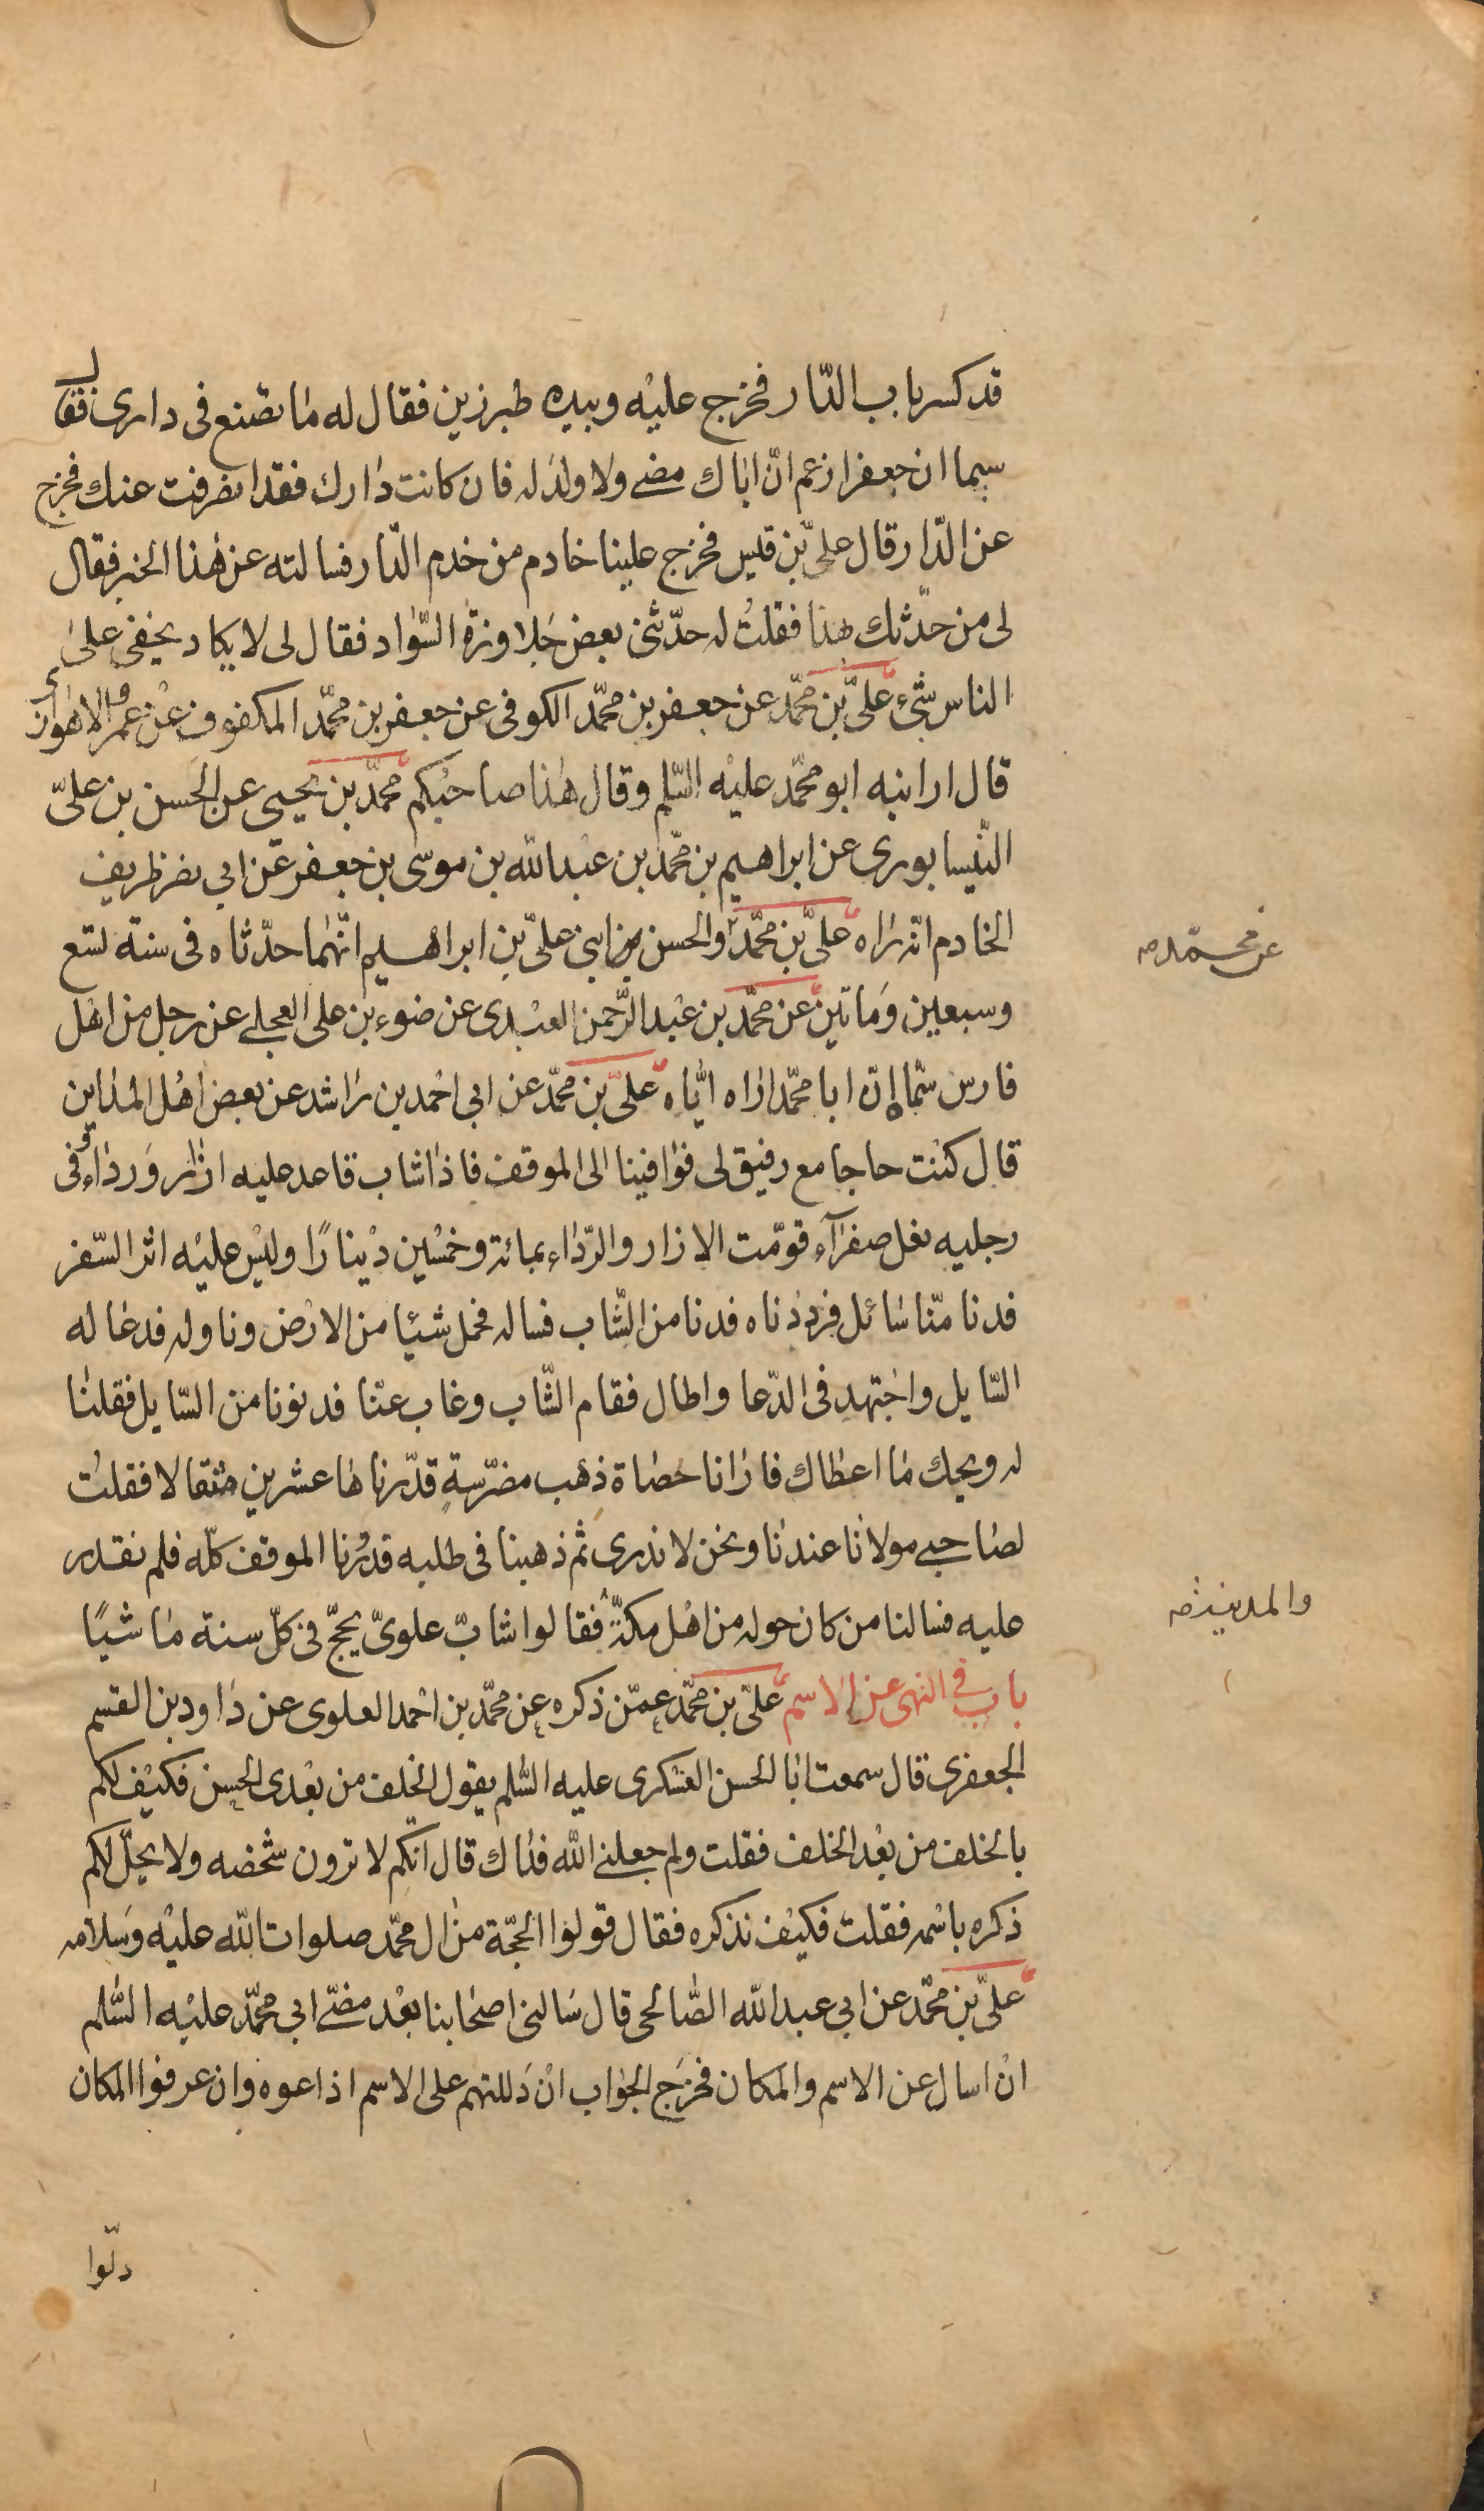 قد كسر باب الدّار فخرج عليْه وبيده طبرزين فقال له مٰا تصنع فى دارى فقال
سيما ان جعفرا زعم انّ اباك مضى ولا ولد له فان كانت دٰارك فقد انصرفت عنك فخرج
عن الدّار قال علىّ بن قيس فخرج علينا خادم من خدم الدّار فسالته عن هٰذا الخبر فقال
لى من حدّثك هذا فقلتُ له حدّثنى بعض جَلاوزة السّوٰاد فقال لى لا يكاد يخفى علىٰ
الناس شىء علىّ بن محمّد عن جعفر بن محمّد الكوفى عن جعفر بن محمّد المكفوف عنْ عمرو الاهوازى
قال ارانيه ابو محمّد عليْه السّلم وقال هٰذا صاحبُكم محمّد بن يحيى عن الحَسن بن علىّ
النّيسابورى عن ابراهيم بن محمّد بن عبْد الله بن موسى بن جعفر عَن ابي نصر ظريف
الخادم انّه رٰاه علىّ بن محمّد والحسن بن ابنى علىّ بن ابراهيم انّهما حدّثاه فى سنة تسع
عن محمّد صه
وسبعين وَماتين عن محمّد بن عبْد الرّحمن العبْدى عن ضوء بن على العجلى عن رجل من اهْل
فارس سمّاه إنّ ابا محمّد ارٰاه ايّاه علىّ بن محمّد عن ابي احْمد بن رٰاشد عن بعض اهْل المدٰاين
قال كنْت حاجا مع رفيق لى فوٰافينا الى الموقف فاذٰا شاب قاعد عليه ازٰار وَردٰاء وفى
رجليه نعل صفرآء قوّمت الازار والرّدٰاء بمائة وخمْسين دْينارًا وليْس عليْه اثر السّفر
فدنا منّا سٰائل فردَدْناه فدنا من الشّاب فساله فحمل شيئا من الارْض وناوله فدعٰا له
السّايل واجْتهد فى الدّعا واطال فقام الشّاب وغاب عنّا فدنونا من السّايل فقلنٰا
له ويحك مٰا اعطٰاك فارٰانا حصٰاة ذهب مضرّسةٍ قدّرناها عشرين مثقالا فقلتُ
لصٰاحبى مولانٰا عندنٰا ونحن لا ندرى ثمّ ذهبنا فى طلبه فدُرنا الموقف كلّه فلم نقدر
عليه فسالنا من كان حوله من اهْل مكّة فقالوا شابّ علوىّ يحجّ فى كلّ سنة مٰاشيًا
والمدينة صه
باب فى النهى عن الاسم علىّ بن محمّد عمّن ذكره عن محمّد بن احْمد العلوى عن دٰاود بن القسم
الجعفرى قال سمعت ابا الحسن العسْكرى عليه السّلم يقول الخلف من بعْدى الحسن فكيْف لكم
بالخلف من بعْد الخلف فقلت ولم جعلنى الله فدٰاك قال انّكم لا ترون شخصه ولا يحلّ لكم
ذكره باسْمه فقلت فكيْف نذكره فقال قولوٰا الحجّة من اٰل محمّد صلوات الله عليْه وَسلامه
علىّ بن محمّد عن ابي عبد الله الصّالحى قال سَالنى اصحٰابنا بعْد مضىّ ابي محمّد عليْه السّلم
انْ اسال عن الاسم والمكان فخرَج الجوٰاب انْ دَللتهم على الاسم اذاعوه وان عرفوا المكان
دلّوا